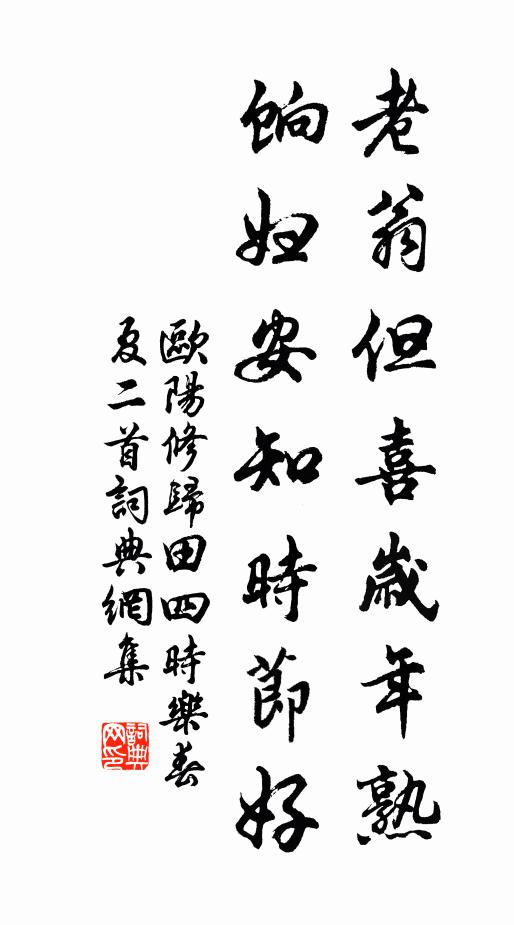 老翁但喜歲年熟
餉婦安知時節好
歐陽修歸田四時樂春
夏二首詞典網集
詞典
网印